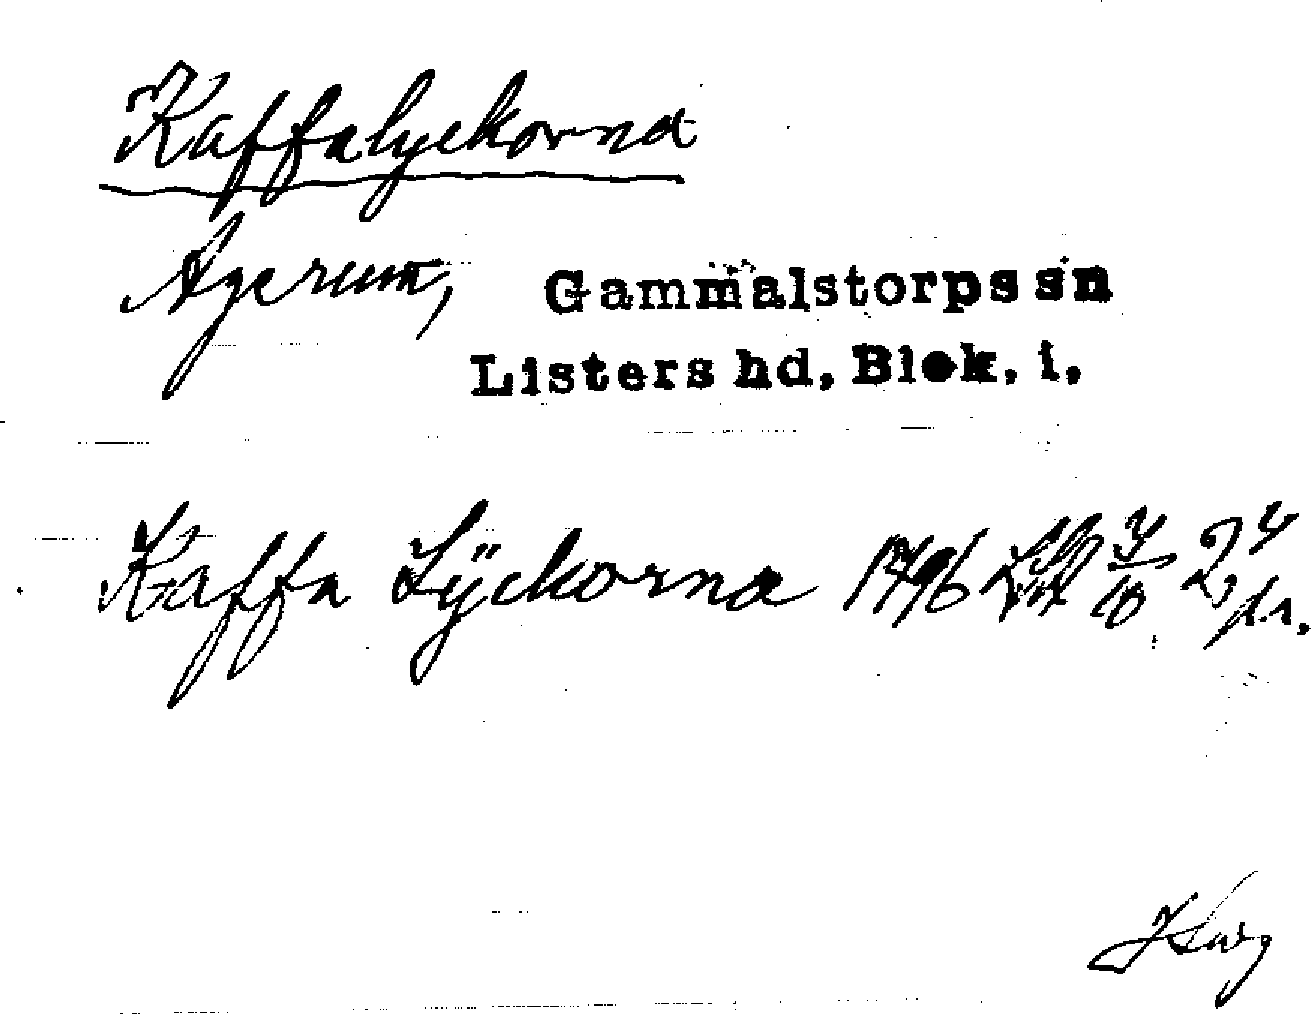 Kaffalyckorna
Agerum, Gammalstorps sn
Listers hd, Blek. l,
Kaffa Lÿckorna 1796 4/10 24